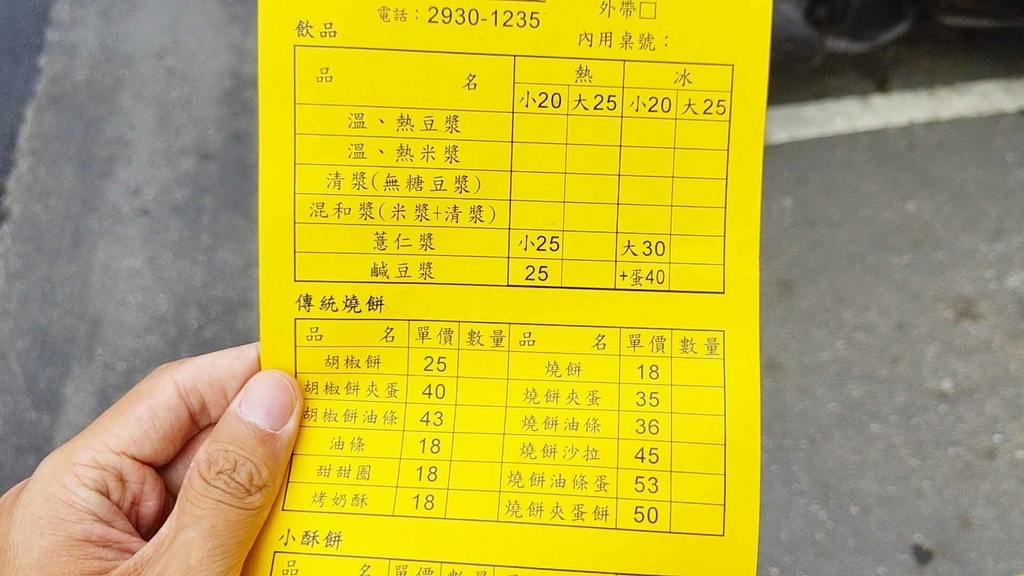 電話：2930-1235
外帶□
飲品
內用桌號：
品名 熱 冰
小20 大25 小20 大25
溫、熱豆漿
溫、熱米漿
清漿(無糖豆漿)
混和漿(米漿+清漿)
薏仁漿 小25 大30
鹹豆漿 25 +蛋40
傳統燒餅
品名 單價 數量 品名 單價 數量
胡椒餅 25 燒餅 18
胡椒餅夾蛋 40 燒餅夾蛋 35
胡椒餅油條 43 燒餅油條 36
油條 18 燒餅沙拉 45
甜甜圈 18 燒餅油條蛋 53
烤奶酥 18 燒餅夾蛋餅 50
小酥餅
品名 單價 數量